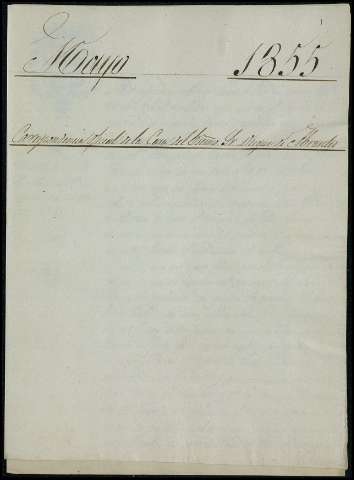 1
Mayo 1855
Correspondencia oficial de la Casa del Excmo. Sr. Duque de